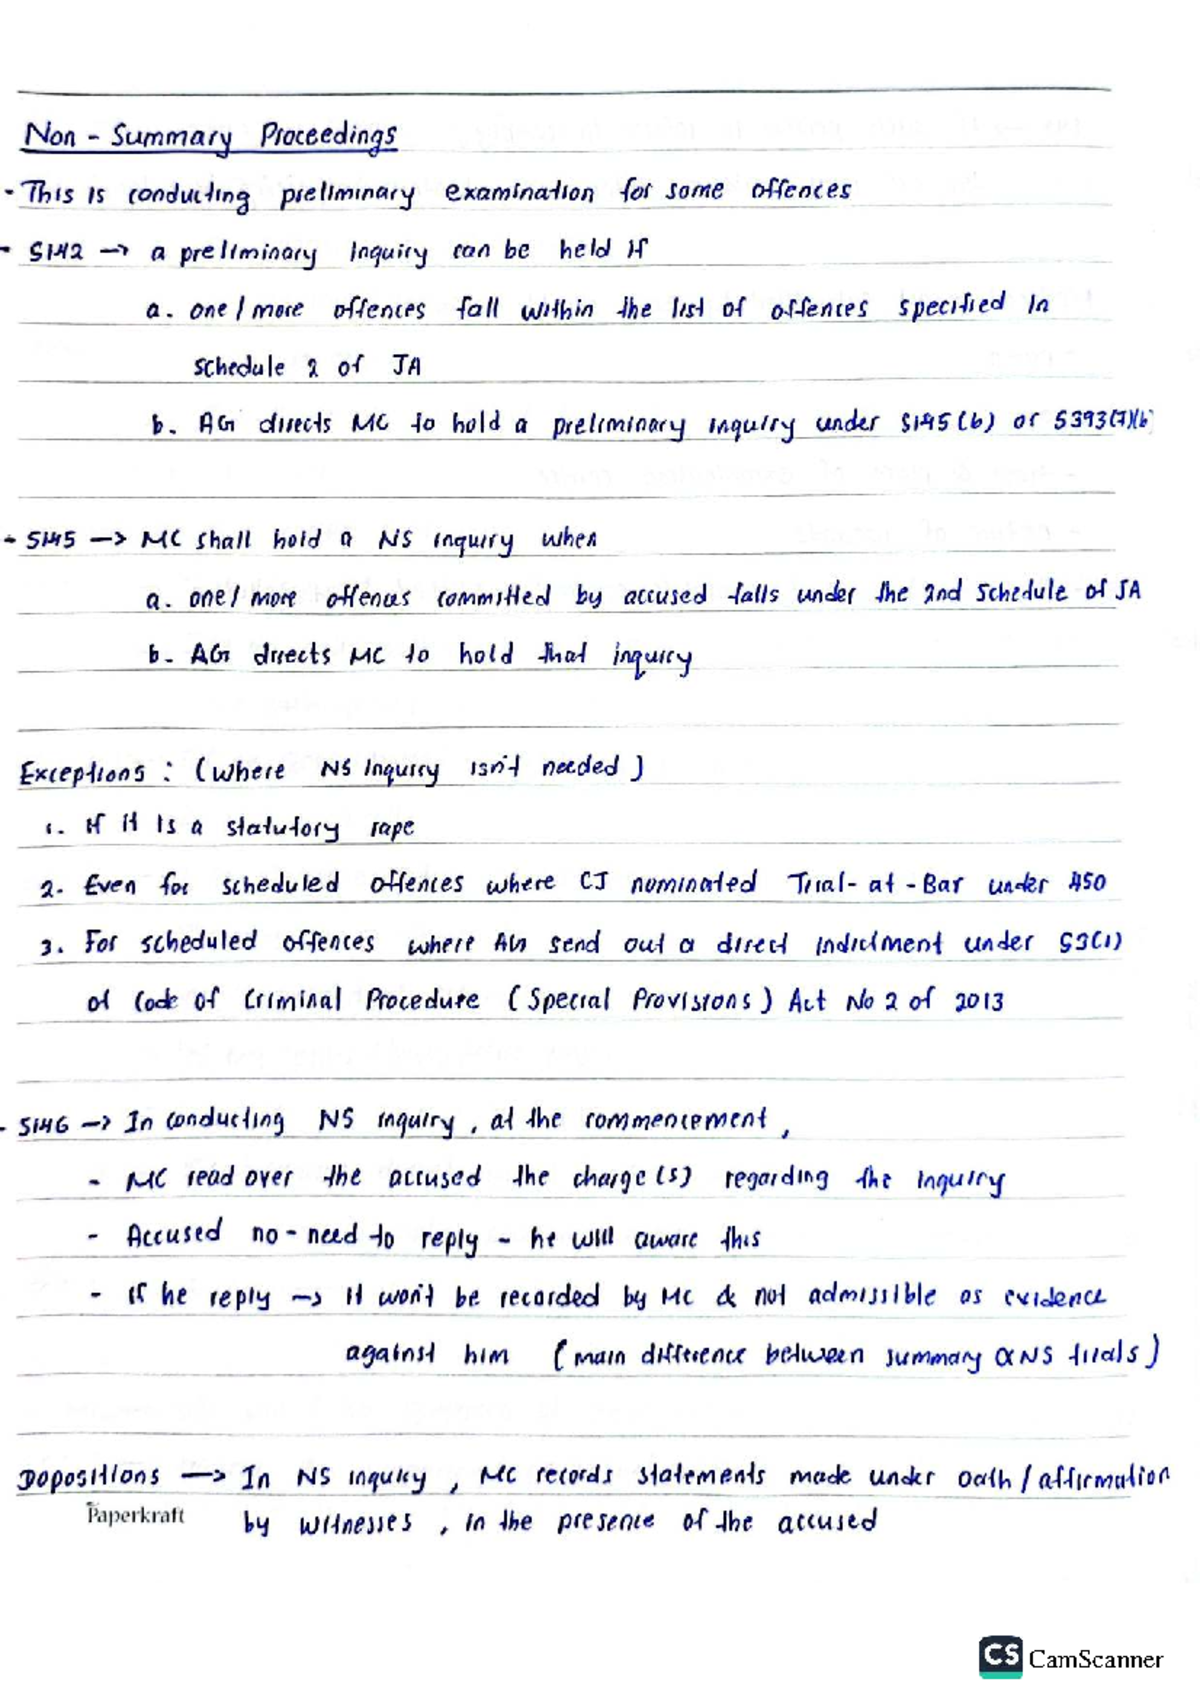 Non - Summary Proceedings
- This is conducting preliminary examination for some offences
- S142 → a preliminary inquiry can be held if
a. one / more offences fall within the list of offences specified in
schedule 2 of JA
b. AG directs MC to hold a preliminary inquiry under S145(b) or S393(7)(b)
- S145 → MC shall hold a NS inquiry when
a. one / more offences committed by accused falls under the 2nd Schedule of JA
b. AG directs MC to hold that inquiry
Exceptions : (where NS inquiry isn't needed)
1. If it is a statutory rape
2. Even for scheduled offences where CJ nominated Trial - at - Bar under 450
3. For scheduled offences where AG send out a direct indictment under S3(1)
of Code of Criminal Procedure (Special Provisions) Act No 2 of 2013
- S146 → In conducting NS inquiry, at the commencement,
- MC read over the accused the charge(s) regarding the inquiry
- Accused no - need to reply - he will aware this
- If he reply → it won't be recorded by MC & not admissible as evidence
against him (main difference between summary & NS trials)
Dopositions → In NS inquiry, MC records statements made under oath / affirmation
Paperkraft
by witnesses, in the presence of the accused
CS CamScanner